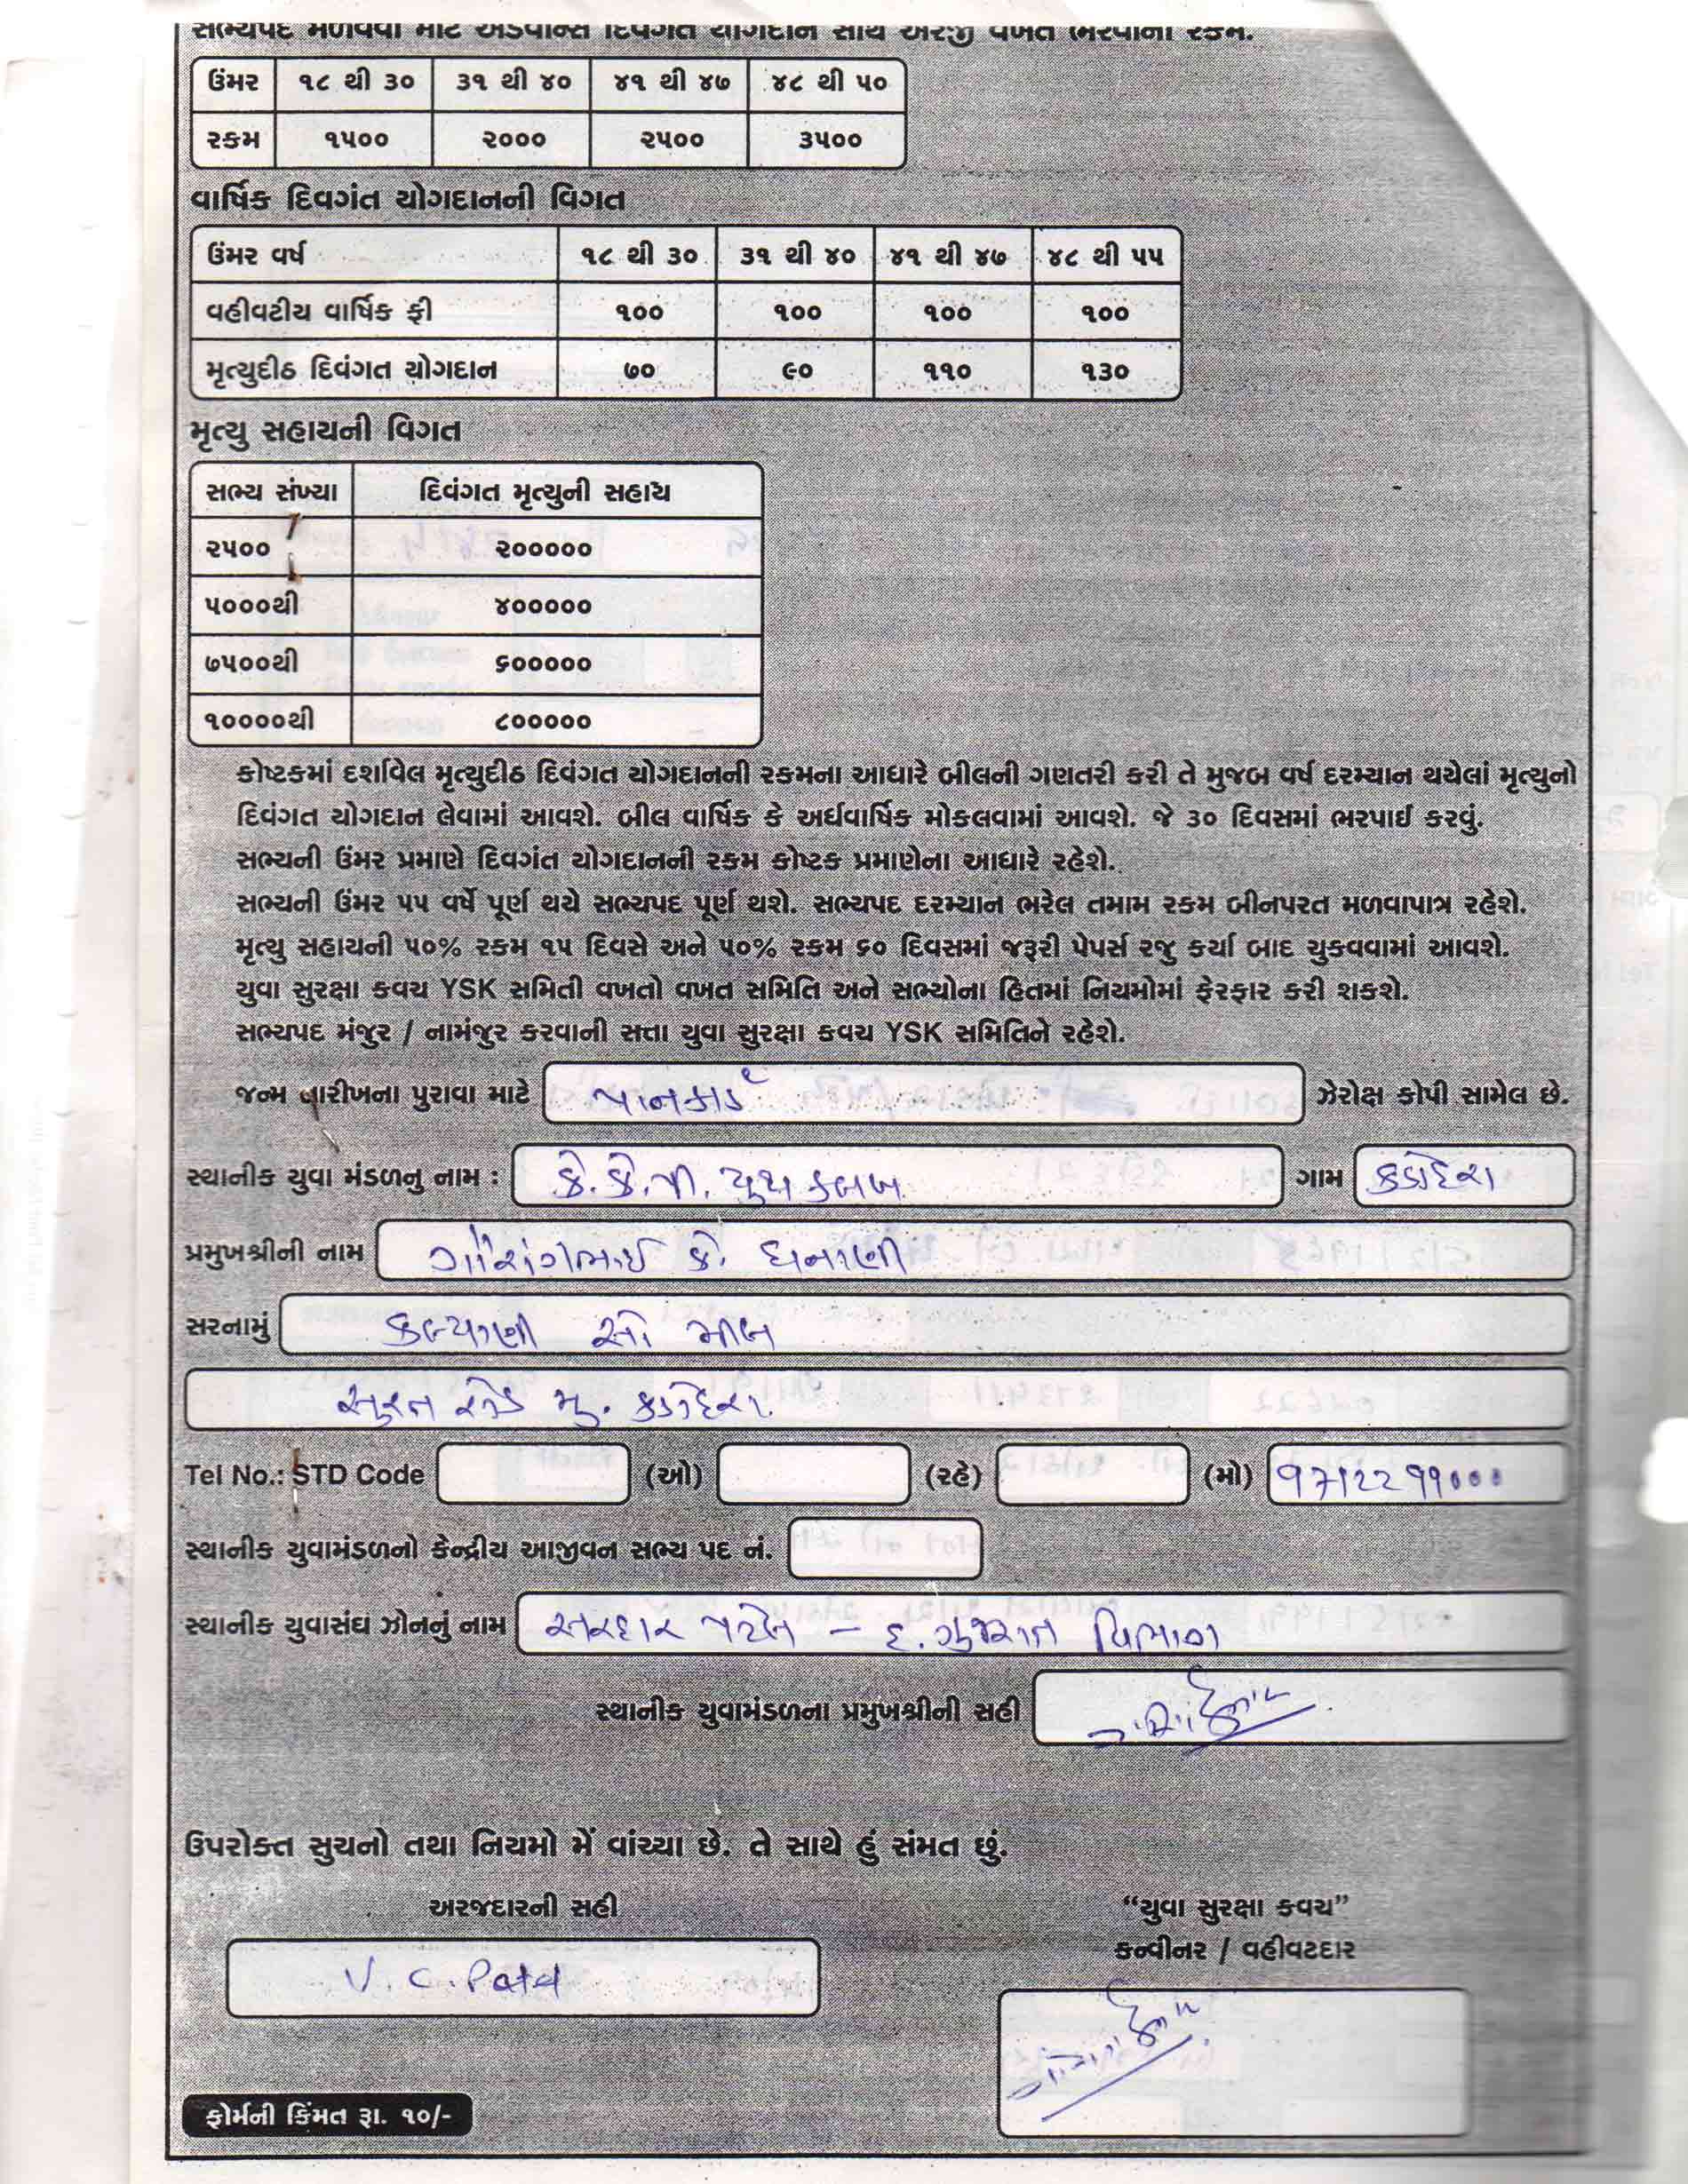 સભ્યપદ મળવવા માટે એડવાન્સ દિવંગત યોગદાન સાથે અરજી વખતે ભરવાની રકમ.
ઉંમર ૧૮ થી ૩૦ ૩૧ થી ૪૦ ૪૧ થી ૪૭ ૪૮ થી ૫૦
રકમ ૧૫૦૦ ૨૦૦૦ ૨૫૦૦ ૩૫૦૦
વાર્ષિક દિવગંત યોગદાનની વિગત
ઉંમર વર્ષ ૧૮ થી ૩૦ ૩૧ થી ૪૦ ૪૧ થી ૪૭ ૪૮ થી ૫૫
વહીવટીય વાર્ષિક ફી ૧૦૦ ૧૦૦ ૧૦૦ ૧૦૦
મૃત્યુદીઠ દિવંગત યોગદાન ૭૦ ૯૦ ૧૧૦ ૧૩૦
મૃત્યુ સહાયની વિગત
સભ્ય સંખ્યા દિવંગત મૃત્યુની સહાય
૨૫૦૦ ૨૦૦૦૦૦
૫૦૦૦થી ૪૦૦૦૦૦
૭૫૦૦થી ૬૦૦૦૦૦
૧૦૦૦૦થી ૮૦૦૦૦૦
કોષ્ટકમાં દર્શાવેલ મૃત્યુદીઠ દિવંગત યોગદાનની રકમના આધારે બીલની ગણતરી કરી તે મુજબ વર્ષ દરમ્યાન થયેલાં મૃત્યુનો
દિવંગત યોગદાન લેવામાં આવશે. બીલ વાર્ષિક કે અર્ધવાર્ષિક મોકલવામાં આવશે. જે ૩૦ દિવસમાં ભરપાઈ કરવું.
સભ્યની ઉંમર પ્રમાણે દિવગંત યોગદાનની રકમ કોષ્ટક પ્રમાણેના આધારે રહેશે.
સભ્યની ઉંમર ૫૫ વર્ષે પૂર્ણ થયે સભ્યપદ પૂર્ણ થશે. સભ્યપદ દરમ્યાન ભરેલ તમામ રકમ બીનપરત મળવાપાત્ર રહેશે.
મૃત્યુ સહાયની ૫૦% રકમ ૧૫ દિવસે અને ૫૦% રકમ ૬૦ દિવસમાં જરૂરી પેપર્સ રજુ કર્યા બાદ ચુકવવામાં આવશે.
યુવા સુરક્ષા કવચ YSK સમિતી વખતો વખત સમિતિ અને સભ્યોના હિતમાં નિયમોમાં ફેરફાર કરી શકશે.
સભ્યપદ મંજુર / નામંજુર કરવાની સત્તા યુવા સુરક્ષા કવચ YSK સમિતિને રહેશે.
જન્મ તારીખના પુરાવા માટે પાનકાર્ડ ઝેરોક્ષ કોપી સામેલ છે.
સ્થાનીક યુવા મંડળનુ નામ : કે.કે.પી. યુથ કલબ ગામ કડોદરા
પ્રમુખશ્રીની નામ ગૌરાંગભાઈ કે. ધનાણી
સરનામું કલ્યાણી સો મીલ
સુરત રોડ મુ. કડોદરા
Tel No.: STD Code (ઓ) (રહે) (મો) ૧૭૧૨૨૧૧૦૦૦
સ્થાનીક યુવામંડળનો કેન્દ્રીય આજીવન સભ્ય પદ નં.
સ્થાનીક યુવાસંઘ ઝોનનું નામ સરદાર પટેલ - દ. ગુજરાત વિભાગ
સ્થાનીક યુવામંડળના પ્રમુખશ્રીની સહી
ઉપરોક્ત સુચનો તથા નિયમો મેં વાંચ્યા છે. તે સાથે હું સંમત છું.
અરજદારની સહી
"યુવા સુરક્ષા કવચ"
કન્વીનર / વહીવટદાર
V. C. Patel
ફોર્મની કિંમત રૂા. ૧૦/-